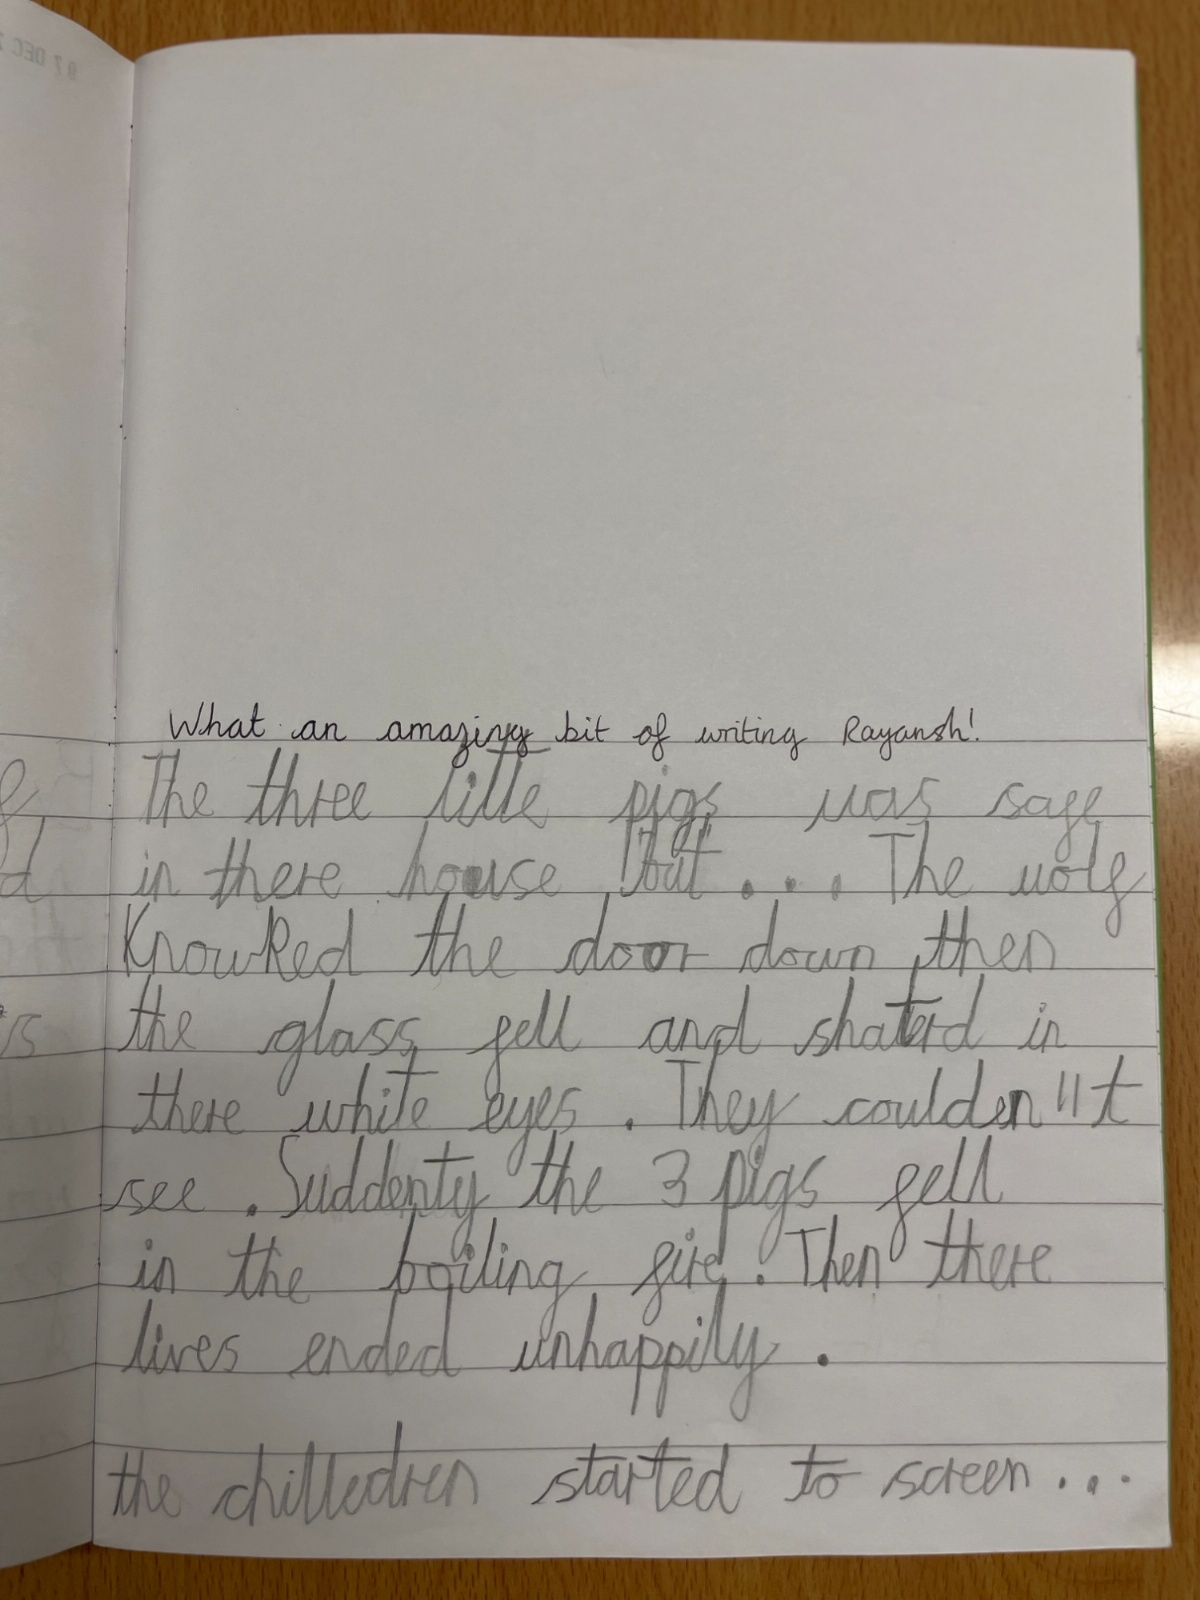 07 DEC
What an amazing bit of writing Rayansh!
The three little pigs was safe
in there house but... The wolf
Knowked the door down then
the glass fell and shaterd in
there white eyes. They coulden"t
see. Suddenty the 3 pigs fell
in the boiling fire. Then there
lives ended unhappily.
the chilledren started to screen...